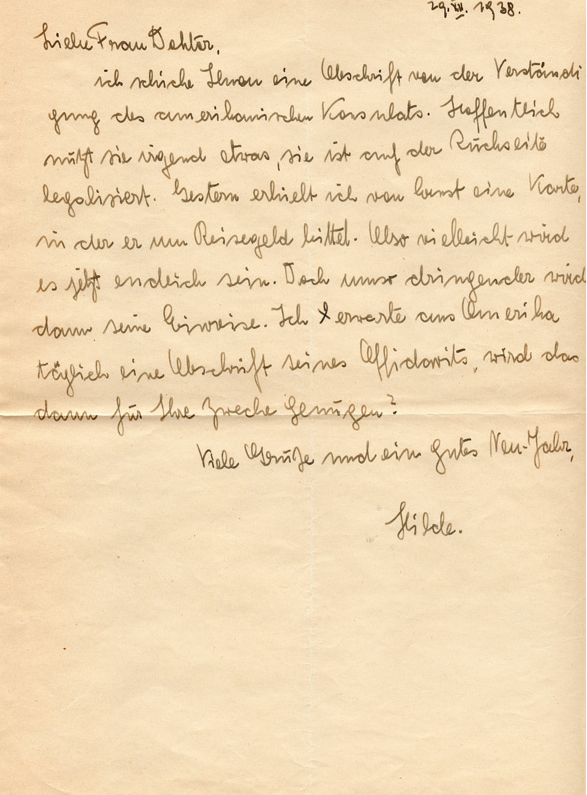 29. XII. 1938.
Liebe Frau Dokter,
ich schicke Ihnen eine Abschrift von der Verständi
gung des amerikanischen Konsulats. Hoffentlich
nützt sie irgend etwas, sie ist auf der Rückseite
legalisiert. Gestern erhielt ich von Ernst eine Karte,
in der er um Reisegeld bittet. Also vielleicht wird
es jetzt endlich sein. Doch umso dringender wird
dann seine Einreise. Ich erwarte aus Amerika
täglich eine Abschrift seines Affidavits, wird das
dann für Ihre Zwecke genügen?
Viele Grüße und ein gutes Neu-Jahr,
Hilde.